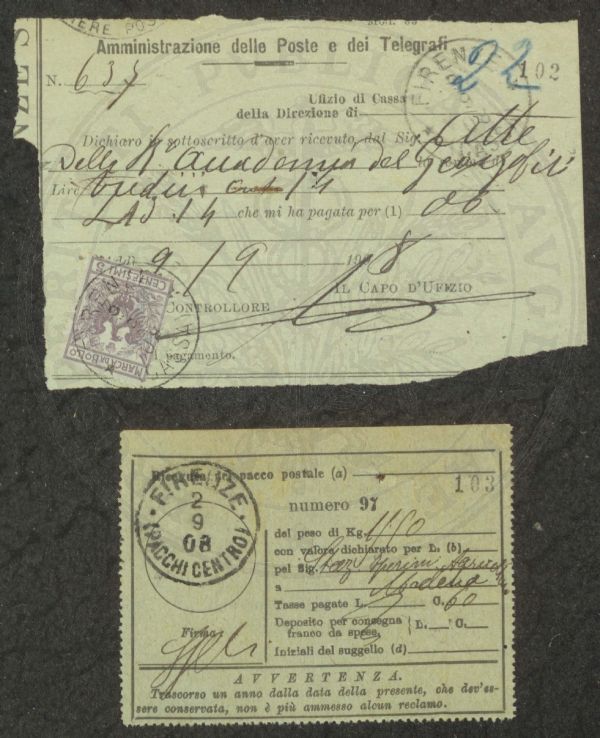 Amministrazione delle Poste e dei Telegrafi
N. 637
22
102
FIRENZE
Ufizio di Cassa
della Direzione di
Dichiaro il sottoscritto d'aver ricevuto dal Sig.
della R. Accademia dei Georgofili
Lire tredici 14
L. 13.14 che mi ha pagata per (1)
9/9 1908
CENTESIMI 5
MARCA DA BOLLO
CASSA
CONTROLLORE
IL CAPO D'UFIZIO
l pagamento.
Ricevuta pel pacco postale (a)
103
numero 97
FIRENZE
2
9
08
(PACCHI CENTRO)
del peso di Kg.
con valore dichiarato per L. (b)
pel Sig. Staz. Sperim. Agraria
a Modena
Tasse pagate L. C. 60
Deposito per consegna franco da spese. L. C.
Iniziali del suggello (d)
Firma
AVVERTENZA.
Trascorso un anno dalla data della presente, che dev'es-
sere conservata, non è più ammesso alcun reclamo.